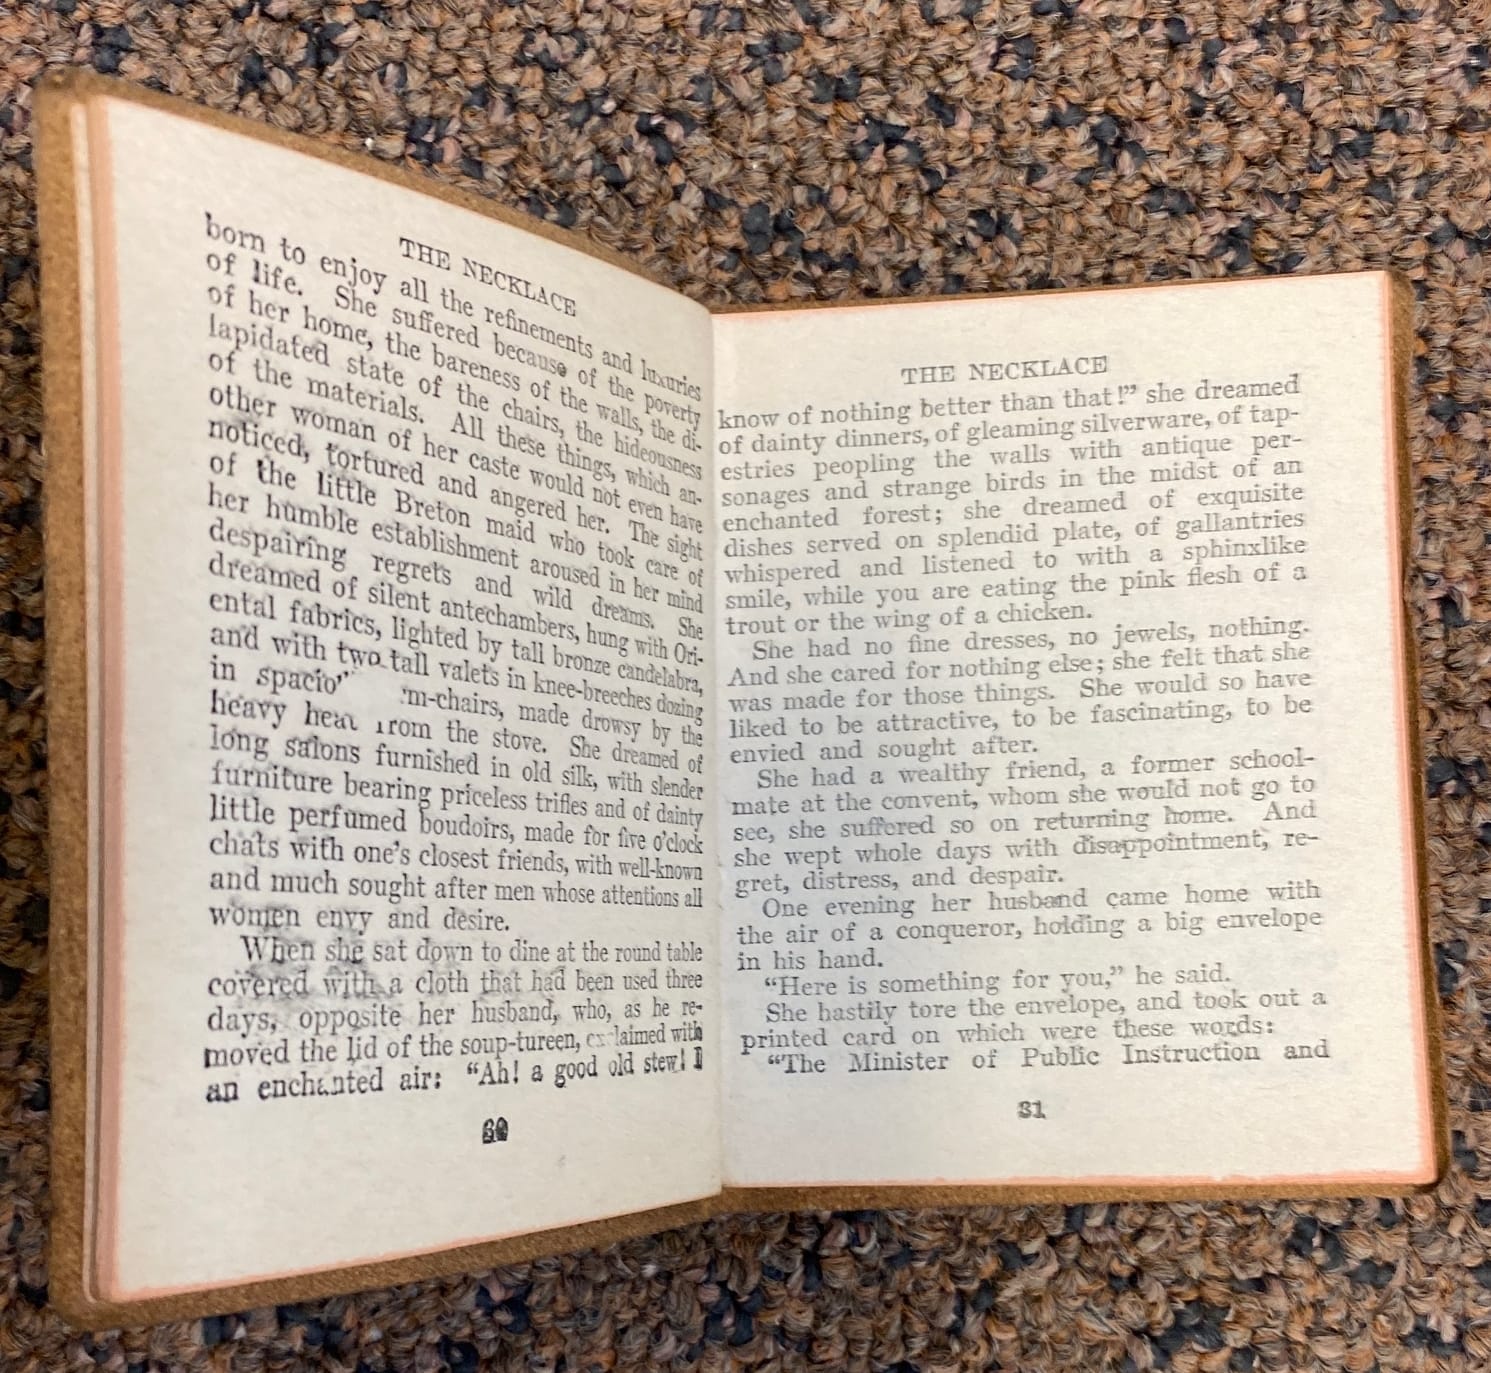 THE NECKLACE
born to enjoy all the refinements and luxuries
of life. She suffered because of the poverty
of her home, the bareness of the walls, the di-
lapidated state of the chairs, the hideousness
of the materials. All these things, which an-
other woman of her caste would not even have
noticed, tortured and angered her. The sight
of the little Breton maid who took care of
her humble establishment aroused in her mind
despairing regrets and wild dreams. She
dreamed of silent antechambers, hung with Ori-
ental fabrics, lighted by tall bronze candelabra,
and with two tall valets in knee-breeches dozing
in made drowsy by the
heavy heat from the stove. She dreamed of
long salons furnished in old silk, with slender
furniture bearing priceless trifles and of dainty
little perfumed boudoirs, made for five o'clock
chats with one's closest friends, with well-known
and much sought after men whose attentions all
women envy and desire.
When she sat down to dine at the round table
covered with a cloth that had been used three
days, opposite her husband, who, as he re-
moved the lid of the soup-tureen, exclaimed with
an enchanted air: "Ah! a good old stew! I
THE NECKLACE
know of nothing better than that!" she dreamed
of dainty dinners, of gleaming silverware, of tap-
estries peopling the walls with antique per-
sonages and strange birds in the midst of an
enchanted forest; she dreamed of exquisite
dishes served on splendid plate, of gallantries
whispered and listened to with a sphinxlike
smile, while you are eating the pink flesh of a
trout or the wing of a chicken.
She had no fine dresses, no jewels, nothing.
And she cared for nothing else; she felt that she
was made for those things. She would so have
liked to be attractive, to be fascinating, to be
envied and sought after.
She had a wealthy friend, a former school-
mate at the convent, whom she would not go to
see, she suffered so on returning home. And
she wept whole days with disappointment, re-
gret, distress, and despair.
One evening her husband came home with
the air of a conqueror, holding a big envelope
in his hand.
"Here is something for you," he said.
She hastily tore the envelope, and took out a
printed card on which were these words:
"The Minister of Public Instruction and
31